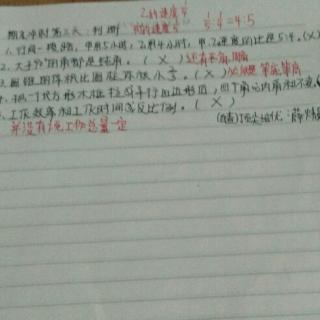 乙的速度
期末冲刺第三天:判断 1/5:1/4=4:5
1.行同一段路,甲用5小时,乙用4小时,甲、乙速度的比是5:4。(X)
2.大于90°的角都是钝角。(X)还有平角、周角
圆锥的体积比圆柱体积小2/3。(X)必须是等底等高
把一个长方形木框拉成平行四边形后,四个角的内角和不变
工作效率和工作时间成反比例。(X)
并没有说工作总量一定